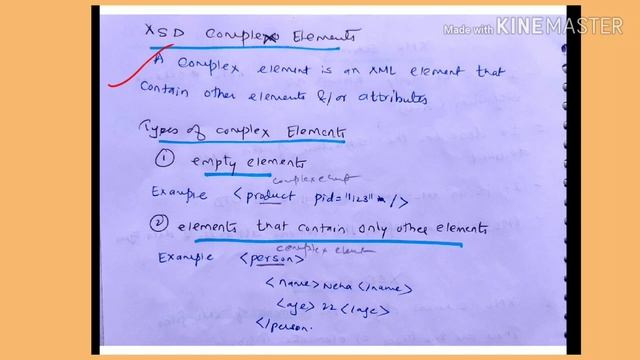 Made with KINEMASTER
XSD Complex Elements
A complex element is an XML element that
contain other elements &/or attributes
Types of complex Elements
① empty elements
complex element
Example <product pid="1123" />
② elements that contain only other elements
complex element
Example <person>
<name> Neha </name>
<age> 22 </age>
</person.